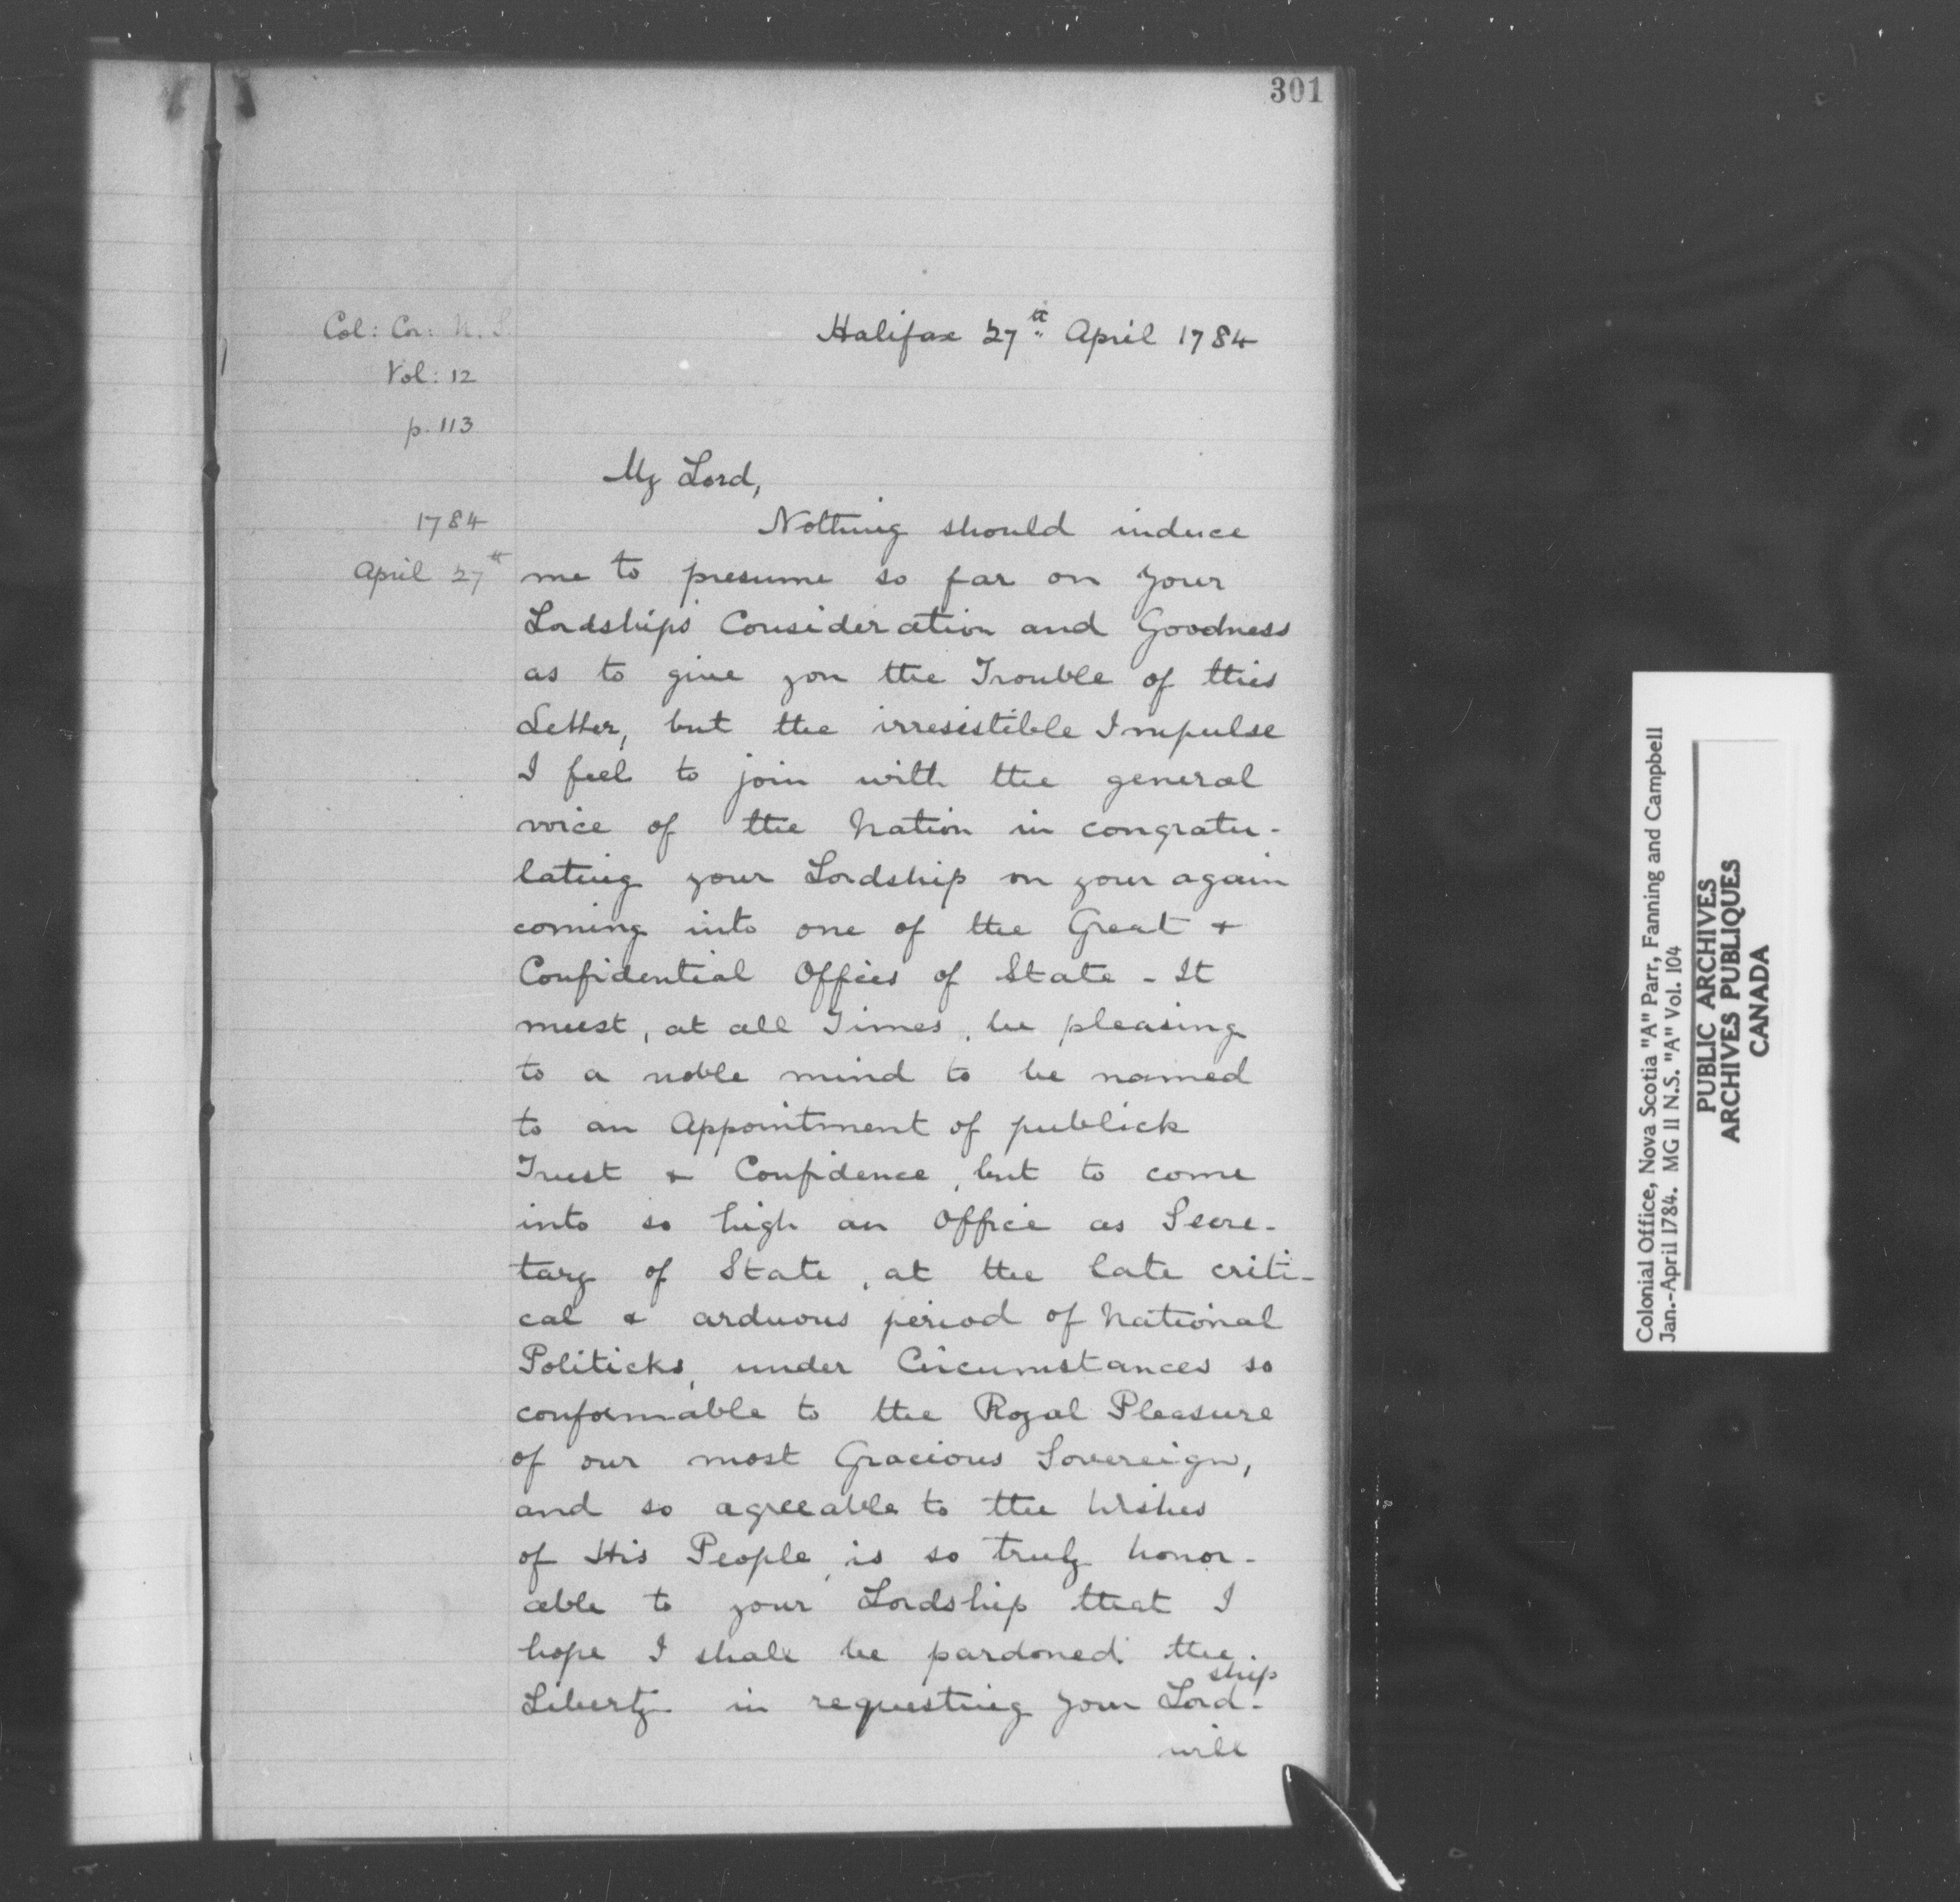 301
Col: Cor: N. S.
Vol: 12
p. 113
Halifax 27th April 1784
My Lord,
1784
April 27th
Nothing should induce
me to presume so far on your
Lordships Consideration and Goodness
as to give you the Trouble of this
Letter, but the irresistible Impulse
I feel to join with the general
voice of the Nation in congratu-
lating your Lordship on your again
coming into one of the Great &
Confidential Offices of State - It
must, at all Times, be pleasing
to a noble mind to be named
to an Appointment of publick
Trust & Confidence, but to come
into so high an Office as Secre-
tary of State, at the late criti-
cal & arduous period of National
Politicks, under Circumstances so
conformable to the Royal Pleasure
of our most Gracious Sovereign,
and so agreeable to the Wishes
of His People, is so truly honor-
able to your Lordship that I
hope I shall be pardoned the
Liberty in requesting your Lord-ship
will
Colonial Office, Nova Scotia "A" Parr, Fanning and Campbell
Jan.-April 1784. MG 11 N.S. "A" Vol. 104
PUBLIC ARCHIVES
ARCHIVES PUBLIQUES
CANADA